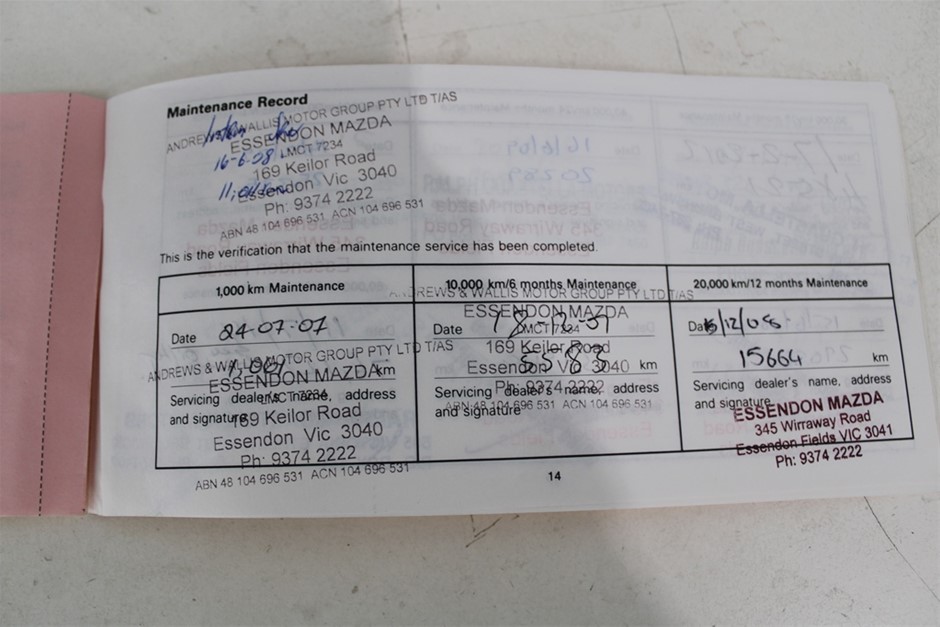 Maintenance Record
ANDREWS & WALLIS MOTOR GROUP PTY LTD T/AS
ESSENDON MAZDA
16-6-08 LMCT 7234
169 Keilor Road
Essendon Vic 3040
Ph: 9374 2222
ABN 48 104 696 531 ACN 104 696 531
This is the verification that the maintenance service has been completed.
1,000 km Maintenance
Date 24-07-07
1,001 km
ANDREWS & WALLIS MOTOR GROUP PTY LTD T/AS
ESSENDON MAZDA
Servicing dealer's name, address
LMCT 7234
and signature
169 Keilor Road
Essendon Vic 3040
Ph: 9374 2222
ABN 48 104 696 531 ACN 104 696 531
10,000 km/6 months Maintenance
ANDREWS & WALLIS MOTOR GROUP PTY LTD T/AS
ESSENDON MAZDA
Date
LMCT 7234
169 Keilor Road
Essendon Vic 3040
8583 km
Ph: 9374 2222
Servicing dealer's name, address
ABN 48 104 696 531 ACN 104 696 531
and signature
20,000 km/12 months Maintenance
Date /12/08
15664 km
Servicing dealer's name, address
and signature
ESSENDON MAZDA
345 Wirraway Road
Essendon Fields VIC 3041
Ph: 9374 2222
14